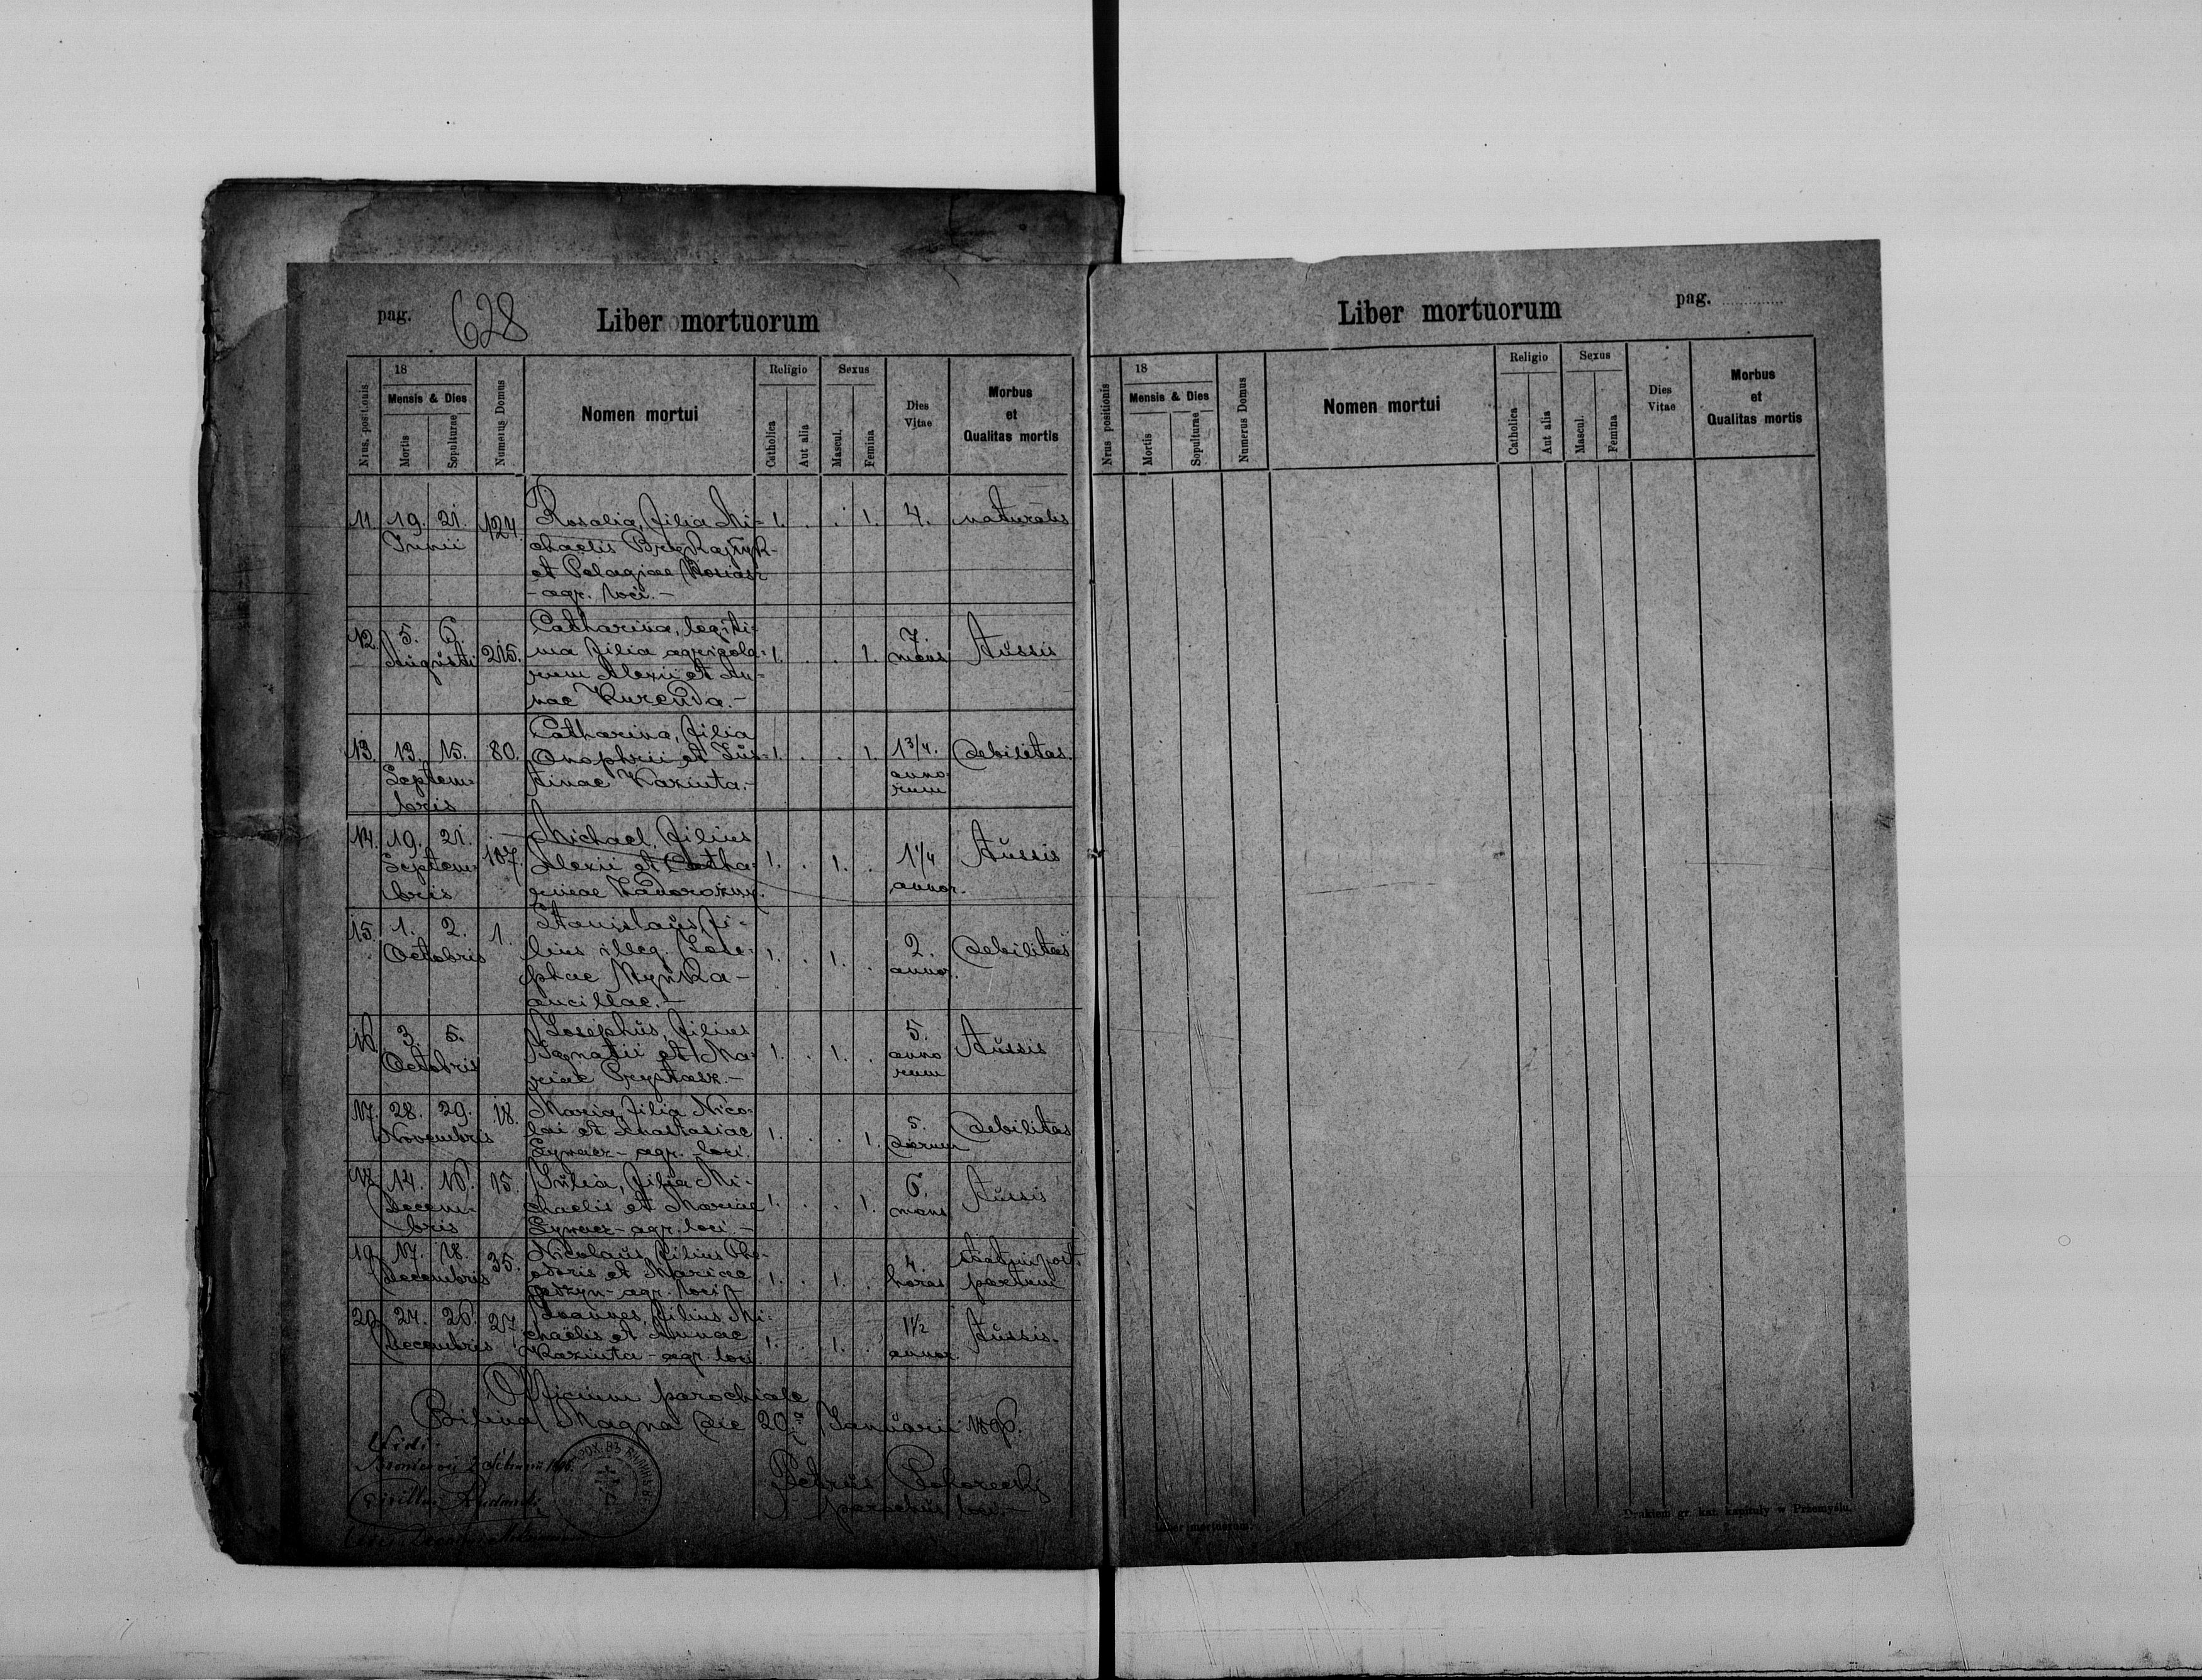 pag. 628
Liber mortuorum
Nrus. positionis
18
Mensis & Dies
Mortis
Sepulturae
Numerus Domus
Nomen mortui
Religio
Catholica
Aut alia
Sexus
Mascul.
Femina
Dies Vitae
Morbus et Qualitas mortis
11. 19. 21. 124. Rosalia, filia Mi= 1. . . 1. 4. naturalis
Junii chaelis
et Pelagiae
- agr. loci. -
12. 5. 6. Catharina, legiti= 7.
Augusti 215. ma filia agricola= 1. . . 1. mens Tussis
rum Alexii et An=
nae Kurenda. -
13. 13. 15. 80. Catharina, filia 1 3/4. debilitas.
Onophrii et Jus= 1. . . 1.
Septem= tinae Kaziuta. - anno
bris rum
14. 19. 21. 107. Michael, filius
Septem= Alexii et Catha= 1. . 1. . 1 1/4 Tussis
bris rinae annor.
15. 1. 2. 1. Stanislaus, fi=
Octobris lius illeg. Jose= 1. . 1. . 2. debilitas
phae annor.
ancillae. -
16. 3. 5. Josephus, filius 5.
Octobris Ignatii et Ma= 1. . 1. . anno Tussis
riae Prystasz. - rum
17. 28. 29. 18. Maria, filia Nico= 5. debilitas
Novembris lai et Anastasiae 1. . . 1. dierum
agr. loci.
18. 14. 16. 15. Julia, filia Mi= 6. Tussis
Decem= chaelis et Mariae 1. . . 1. mens
bris agr. loci -
19. 17. 18. 35. Nicolaus, filius The= 4. statim post
Decembris odoris et Mariae 1. . 1. . horas partum
agr. loci
20. 24. 26. 27. Joannes, filius Mi= 1 1/2 Tussis.
Decembris chaelis et Annae 1. . 1. . annor.
Kaziuta - agr. loci
Officium parochiale
Bilina Magna die 20a Januarii 1896.
Vidi.
Petrus
parochus loci. -
Liber mortuorum
pag.
Nrus positionis
18
Mensis & Dies
Mortis
Sepulturae
Numerus Domus
Nomen mortui
Religio
Catholica
Aut alia
Sexus
Mascul.
Femina
Dies Vitae
Morbus et Qualitas mortis
Liber mortuorum.
Drukiem gr. kat. kapituły w Przemyślu.